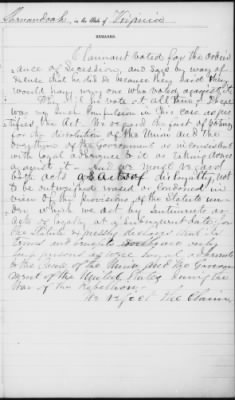 Shenandoah, in the State of Virginia
REMARKS.
Claimant voted for the ordin
ance of Secession, and says by way of
excuse that he did so because they said they
would hang any one who voted against it.
Why did he vote at all then? There
was no such compulsion in this case as jus
tified the act. We regard the act of voting
for the dissolution of the Union and the
overthrow of the Government as inconsistent
with loyal adherence to it as taking arms
against it. And we must regard
both acts as of disloyalty not
to be outweighed or condoned in
view of the provisions of the Statute un
der which we act by sentiments or
acts of loyalty at a subsequent date, for
the Statute expressly declares that its
terms and only
such persons as were loyal adherents
to the Cause of the Union and the Govern
ment of the United States during the
War of the Rebellion.
We reject the Claim.